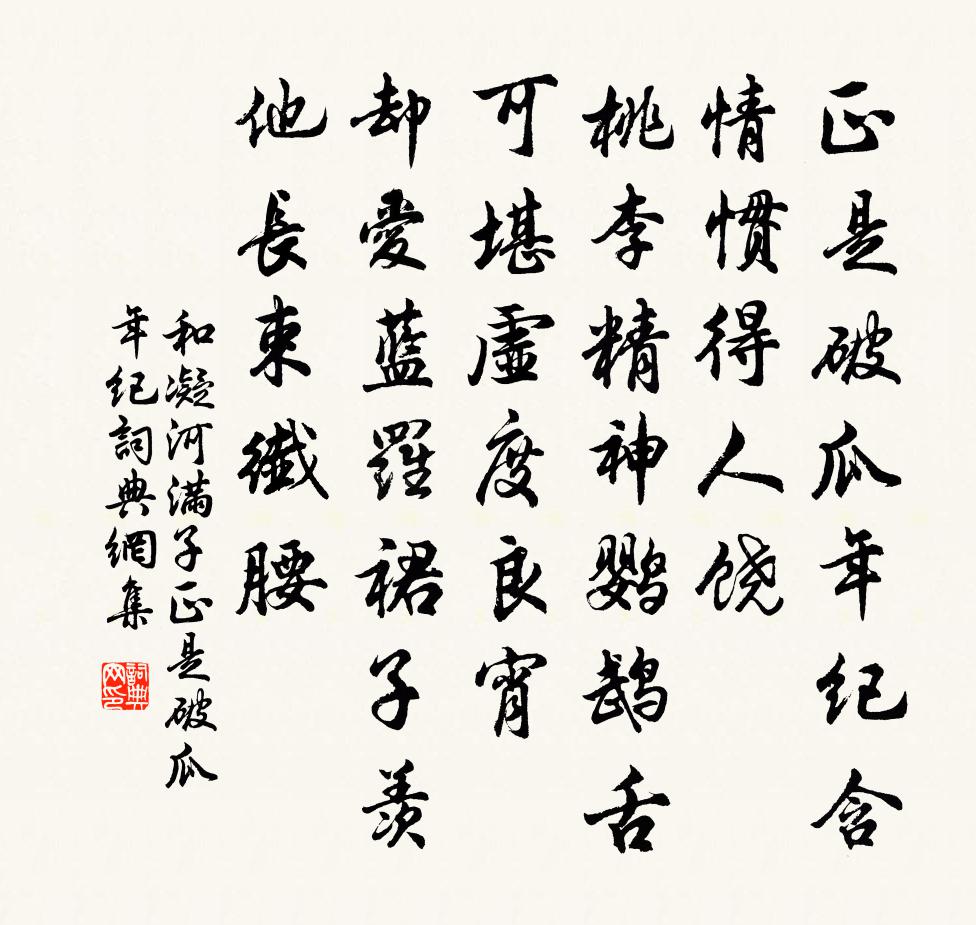 正是破瓜年纪含
情惯得人饶
桃李精神鹦鹉舌
可堪虚度良宵
却愛藍羅裙子羨
他長束纖腰
和凝河滿子正是破瓜
年纪詞典網集
詞典网印